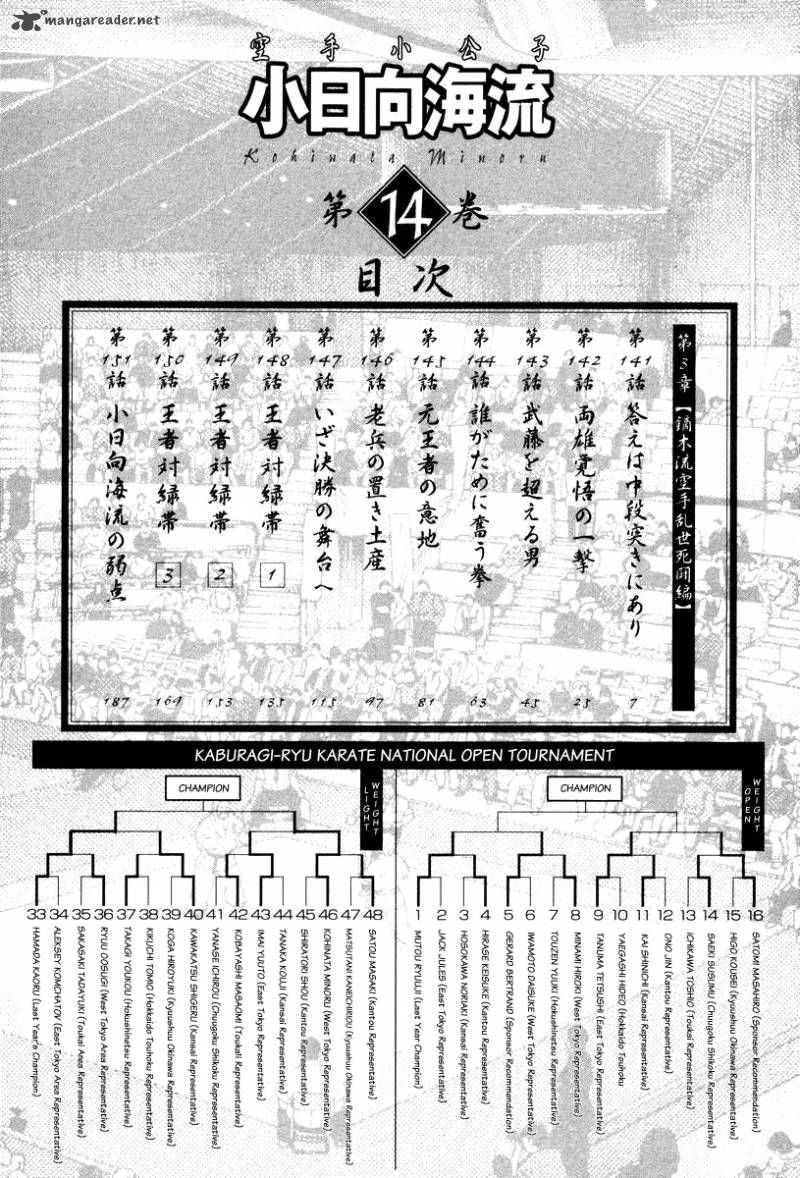 mangareader.net
空手小公子
小日向海流
Kohinata Minoru
第14巻
目次
第3章【鏑木流空手乱世死闘編】
第141話 答えは中段突きにあり 7
第142話 両雄覚悟の一撃 25
第143話 武藤を超える男 45
第144話 誰がために奮う拳 63
第145話 元王者の意地 81
第146話 老兵の置き土産 97
第147話 いざ決勝の舞台へ 115
第148話 王者対緑帯 1 135
第149話 王者対緑帯 2 153
第150話 王者対緑帯 3 169
第151話 小日向海流の弱点 187
KABURAGI-RYU KARATE NATIONAL OPEN TOURNAMENT
CHAMPION
LIGHT WEIGHT
33 HAMADA KAORU (Last Year's Champion)
34 ALEKSEY KOMCHATOV (East Tokyo Area Representative)
35 SAKASAKI TADAYUKI (Toukai Area Representative)
36 RYUU OOSUGI (West Tokyo Area Representative)
37 TAKAGI YOUKOU (Hokushinetsu Representative)
38 KIKUCHI TOMIO (Hokkaido Touhoku Representative)
39 KOGA HIROYUKI (Kyuushuu Okinawa Representative)
40 KAWAKATSU SHIGERU (Kansai Representative)
41 YANASE ICHIROU (Chuugoku Shikoku Representative)
42 KOBAYASHI MASAOMI (Toukaii Representative)
43 IMAI YUUTO (East Tokyo Representative)
44 TANAKA KOUJI (Kansai Representative)
45 SHIRATORI SHOU (Kantou Representative)
46 KOHINATA MINORU (West Tokyo Representative)
47 MATSUTANI KANEICHIROU (Kyuushuu Okinawa Representative)
48 SATOU MASAKI (Kantou Representative)
CHAMPION
OPEN WEIGHT
1 MUTOU RYUUJI (Last Year Champion)
2 JACK JULES (East Tokyo Representative)
3 HOSOKAWA NORIAKI (Kansai Representative)
4 HIRASE KEISUKE (Kantou Representative)
5 GERARD BERTRAND (Sponsor Recommendation)
6 IWAMOTO DAISUKE (West Tokyo Representative)
7 TOUZEN YUUKI (Hokushinetsu Representative)
8 MINAMI HIROKI (West Tokyo Representative)
9 TANUMA TETSUSHI (East Tokyo Representative)
10 YAEGASHI HIDEO (Hokkaido Touhoku
11 KAI SHINICHI (Kansai Representative)
12 ONO JIN (Kantou Representative)
13 ICHIKAWA TOSHIO (Toukai Representative)
14 SAEKI SUSUMU (Chuugoku Shikoku Representative)
15 HIGO KOUSEI (Kyuushuu Okinawa Representative)
16 SATOMI MASAHIRO (Sponsor Recommendation)